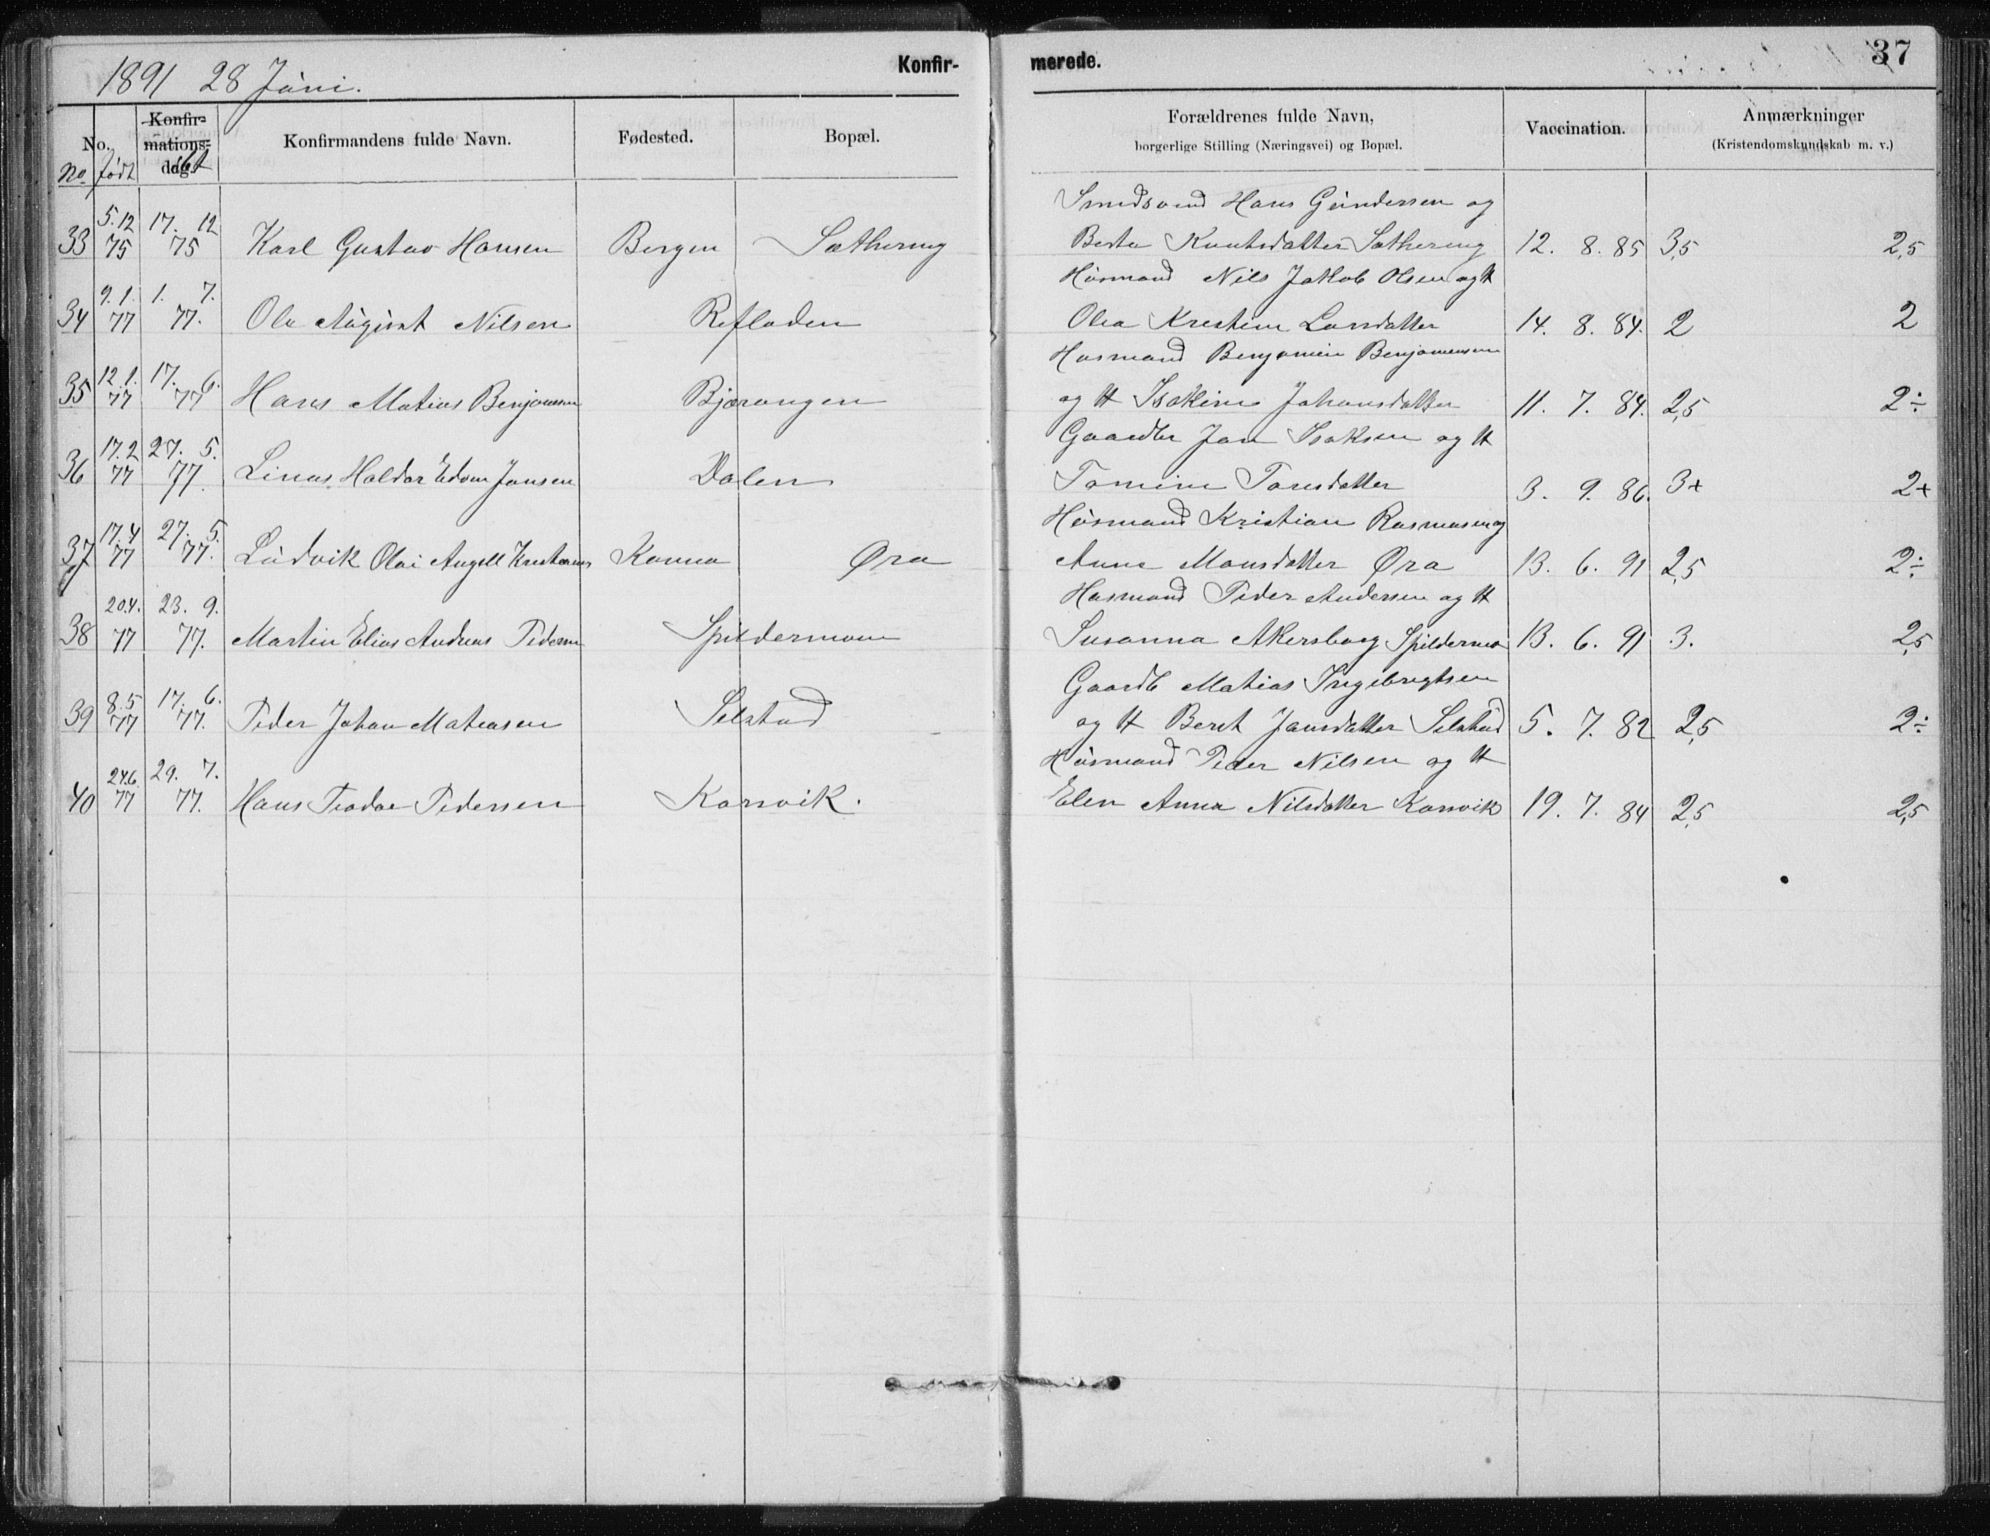 1891 28 Juni. Konfir- merede. 37
No. Konfir-mations-dag. Konfirmandens fulde Navn. Fødested. Bopæl. Forældrenes fulde Navn, borgerlige Stilling (Næringsvei) og Bopæl. Vaccination. Anmærkninger (Kristendomskundskab m. v.)
No født
Hans Gundersen og
33 5.12 75 17. 12 75 Karl Gustav Hansen Bergen Sathering Knutsdatter Sathering 12. 8. 85 3,5 2,5
Husmand Nils Jakob Olsen og H
34 9.1. 77 1. 7. 77. Ole August Nilsen Refladen Olea Kristine Larsdatter 14. 8. 84. 2 2
Husmand Benjamin Benjaminsen
35 12.1. 77 17. 6. 77 Hans Matias Benjaminsen Bjærangen og H Isakine Johansdatter 11. 7. 84. 2,5 2÷
Gaardbr Jan Isaksen og H
36 17.2 77 27. 5. 77. Linus Haldor Edvin Jansen Dalen Tomine Toresdatter 3. 9. 86. 3+ 2+
Husmand Kristian Rasmusen og
37 17.4 77 27. 5. 77. Ludvik Olai Angell Kristiansen Kanna Øra Anne Monsdatter Øra 13. 6. 91 2,5 2÷
Husmand Peder Andersen og H
38 20.4. 77 23. 9. 77. Martin Elias Andreas Pedersen Spildermoen Susanna Akersborg Spildermo 13. 6. 91 3. 2,5
Gaardb Matias Ingebrigtsen
39 8.5 77 17. 6. 77. Peder Johan Matiasen Selstad og H Beret Jansdatter Selstad 5. 7. 82 2,5 2÷
Husmand Peder Nilsen og H
40 24.6 77 29. 7. 77. Hans Teodor Pedersen Korsvik. Elen Anna Nilsdatter Korsvik 19. 7. 84 2,5 2,5